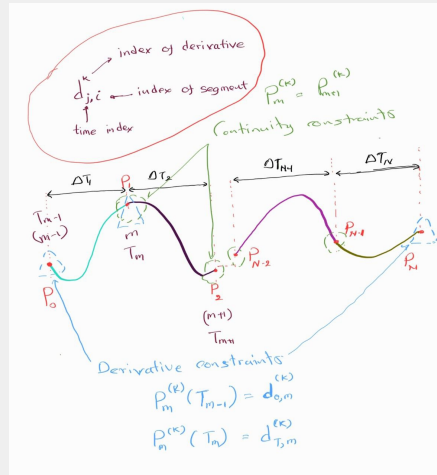 index of derivative
d^k_{j,i} ← index of segment
time index
P_m^{(k)} = P_{m+1}^{(k)}
Continuity constraints
ΔT_1
ΔT_2
ΔT_{N-1}
ΔT_N
P_1
T_{m-1}
(m-1)
m
T_m
P_0
P_2
(m+1)
T_{m+1}
P_{N-2}
P_{N-1}
P_N
Derivative constraints
P_m^{(k)}(T_{m-1}) = d_{0,m}^{(k)}
P_m^{(k)}(T_m) = d_{T,m}^{(k)}